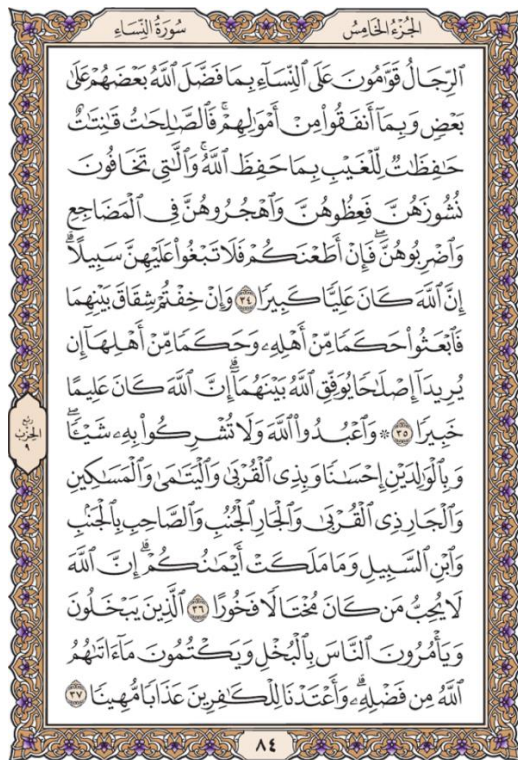 الجُزْءُ الخَامِسُ
سُورَةُ النِّسَاءِ
ٱلرِّجَالُ قَوَّٰمُونَ عَلَى ٱلنِّسَآءِ بِمَا فَضَّلَ ٱللَّهُ بَعْضَهُمْ عَلَىٰ
بَعْضٖ وَبِمَآ أَنفَقُوا۟ مِنْ أَمْوَٰلِهِمْۚ فَٱلصَّٰلِحَٰتُ قَٰنِتَٰتٌ
حَٰفِظَٰتٞ لِّلْغَيْبِ بِمَا حَفِظَ ٱللَّهُۚ وَٱلَّٰتِي تَخَافُونَ
نُشُوزَهُنَّ فَعِظُوهُنَّ وَٱهْجُرُوهُنَّ فِي ٱلْمَضَاجِعِ
وَٱضْرِبُوهُنَّۖ فَإِنْ أَطَعْنَكُمْ فَلَا تَبْغُوا۟ عَلَيْهِنَّ سَبِيلًاۗ
إِنَّ ٱللَّهَ كَانَ عَلِيّٗا كَبِيرٗا ٣٤ وَإِنْ خِفْتُمْ شِقَاقَ بَيْنِهِمَا
فَٱبْعَثُوا۟ حَكَمٗا مِّنْ أَهْلِهِۦ وَحَكَمٗا مِّنْ أَهْلِهَآ إِن
يُرِيدَآ إِصْلَٰحٗا يُوَفِّقِ ٱللَّهُ بَيْنَهُمَآۗ إِنَّ ٱللَّهَ كَانَ عَلِيمًا
خَبِيرٗا ٣٥ ۞ وَٱعْبُدُوا۟ ٱللَّهَ وَلَا تُشْرِكُوا۟ بِهِۦ شَيْـٔٗاۖ
وَبِٱلْوَٰلِدَيْنِ إِحْسَٰنٗا وَبِذِي ٱلْقُرْبَىٰ وَٱلْيَتَٰمَىٰ وَٱلْمَسَٰكِينِ
وَٱلْجَارِ ذِي ٱلْقُرْبَىٰ وَٱلْجَارِ ٱلْجُنُبِ وَٱلصَّاحِبِ بِٱلْجَنۢبِ
وَٱبْنِ ٱلسَّبِيلِ وَمَا مَلَكَتْ أَيْمَٰنُكُمْۗ إِنَّ ٱللَّهَ
لَا يُحِبُّ مَن كَانَ مُخْتَالٗا فَخُورًا ٣٦ ٱلَّذِينَ يَبْخَلُونَ
وَيَأْمُرُونَ ٱلنَّاسَ بِٱلْبُخْلِ وَيَكْتُمُونَ مَآ ءَاتَىٰهُمُ
ٱللَّهُ مِن فَضْلِهِۦۗ وَأَعْتَدْنَا لِلْكَٰفِرِينَ عَذَابٗا مُّهِينٗا ٣٧
ربع
الحزب
٩
٨٤